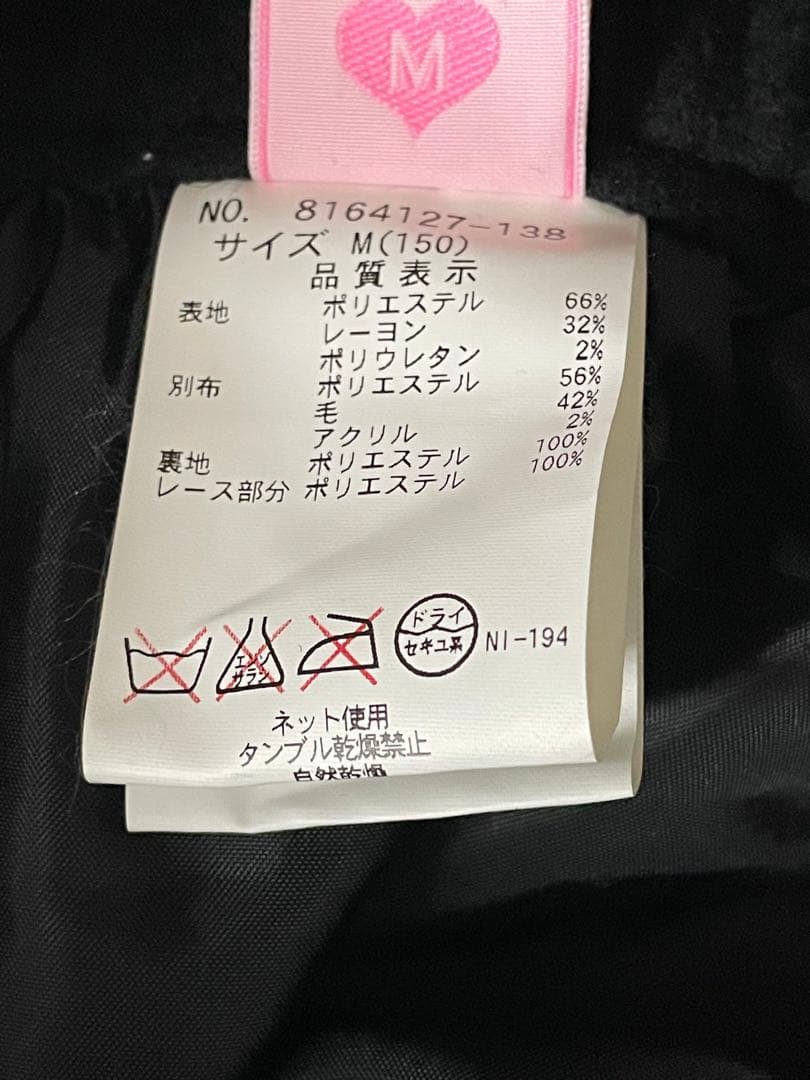 M
NO. 8164127-138
サイズ M(150)
品質表示
表地 ポリエステル 66%
レーヨン 32%
ポリウレタン 2%
別布 ポリエステル 56%
毛 42%
アクリル 2%
裏地 ポリエステル 100%
レース部分 ポリエステル 100%
エンソ
サラシ
ドライ
セキユ系
NI-194
ネット使用
タンブル乾燥禁止
自然乾燥